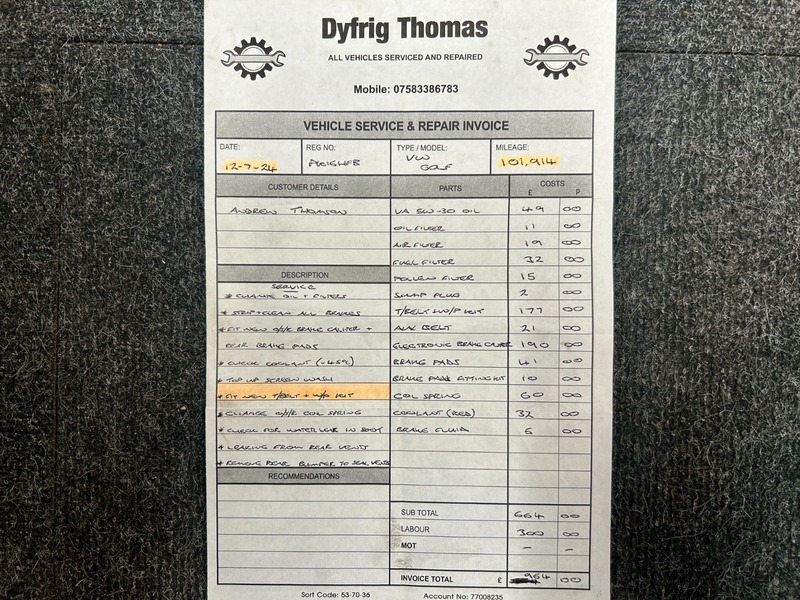 Dyfrig Thomas
ALL VEHICLES SERVICED AND REPAIRED
Mobile: 07583386783
VEHICLE SERVICE & REPAIR INVOICE
DATE: REG NO: TYPE / MODEL: MILEAGE:
12-7-24 VW GOLF 101,914
CUSTOMER DETAILS PARTS COSTS £ P
ANDREW THOMSON VA 5W-30 OIL 49 00
OIL FILTER 11 00
AIR FILTER 19 00
FUEL FILTER 32 00
DESCRIPTION POLLEN FILTER 15 00
SERVICE
* CHANGE OIL + FILTERS SUMP PLUG 2 00
* STRIP + CLEAN ALL BRAKES T/BELT + W/P KIT 177 00
* FIT NEW O/S/R BRAKE CALIPER + AUX BELT 21 00
REAR BRAKE PADS ELECTRONIC BRAKE CALIPER 190 00
* CHECK COOLANT (-45°C) BRAKE PADS 41 00
* TOP UP SCREEN WASH BRAKE PADS FITTING KIT 10 00
* FIT NEW T/BELT + W/P KIT COIL SPRING 60 00
* CHANGE O/S/R COIL SPRING COOLANT (RED) 32 00
* CHECK FOR WATER LEAK IN BOOT BRAKE FLUID 5 00
* LEAKING FROM REAR VENTS
* REMOVE REAR BUMPER TO SEAL VENTS
RECOMMENDATIONS
SUB TOTAL 664 00
LABOUR 300 00
MOT - -
INVOICE TOTAL £ 964 00
Sort Code: 53-70-36 Account No: 77008235